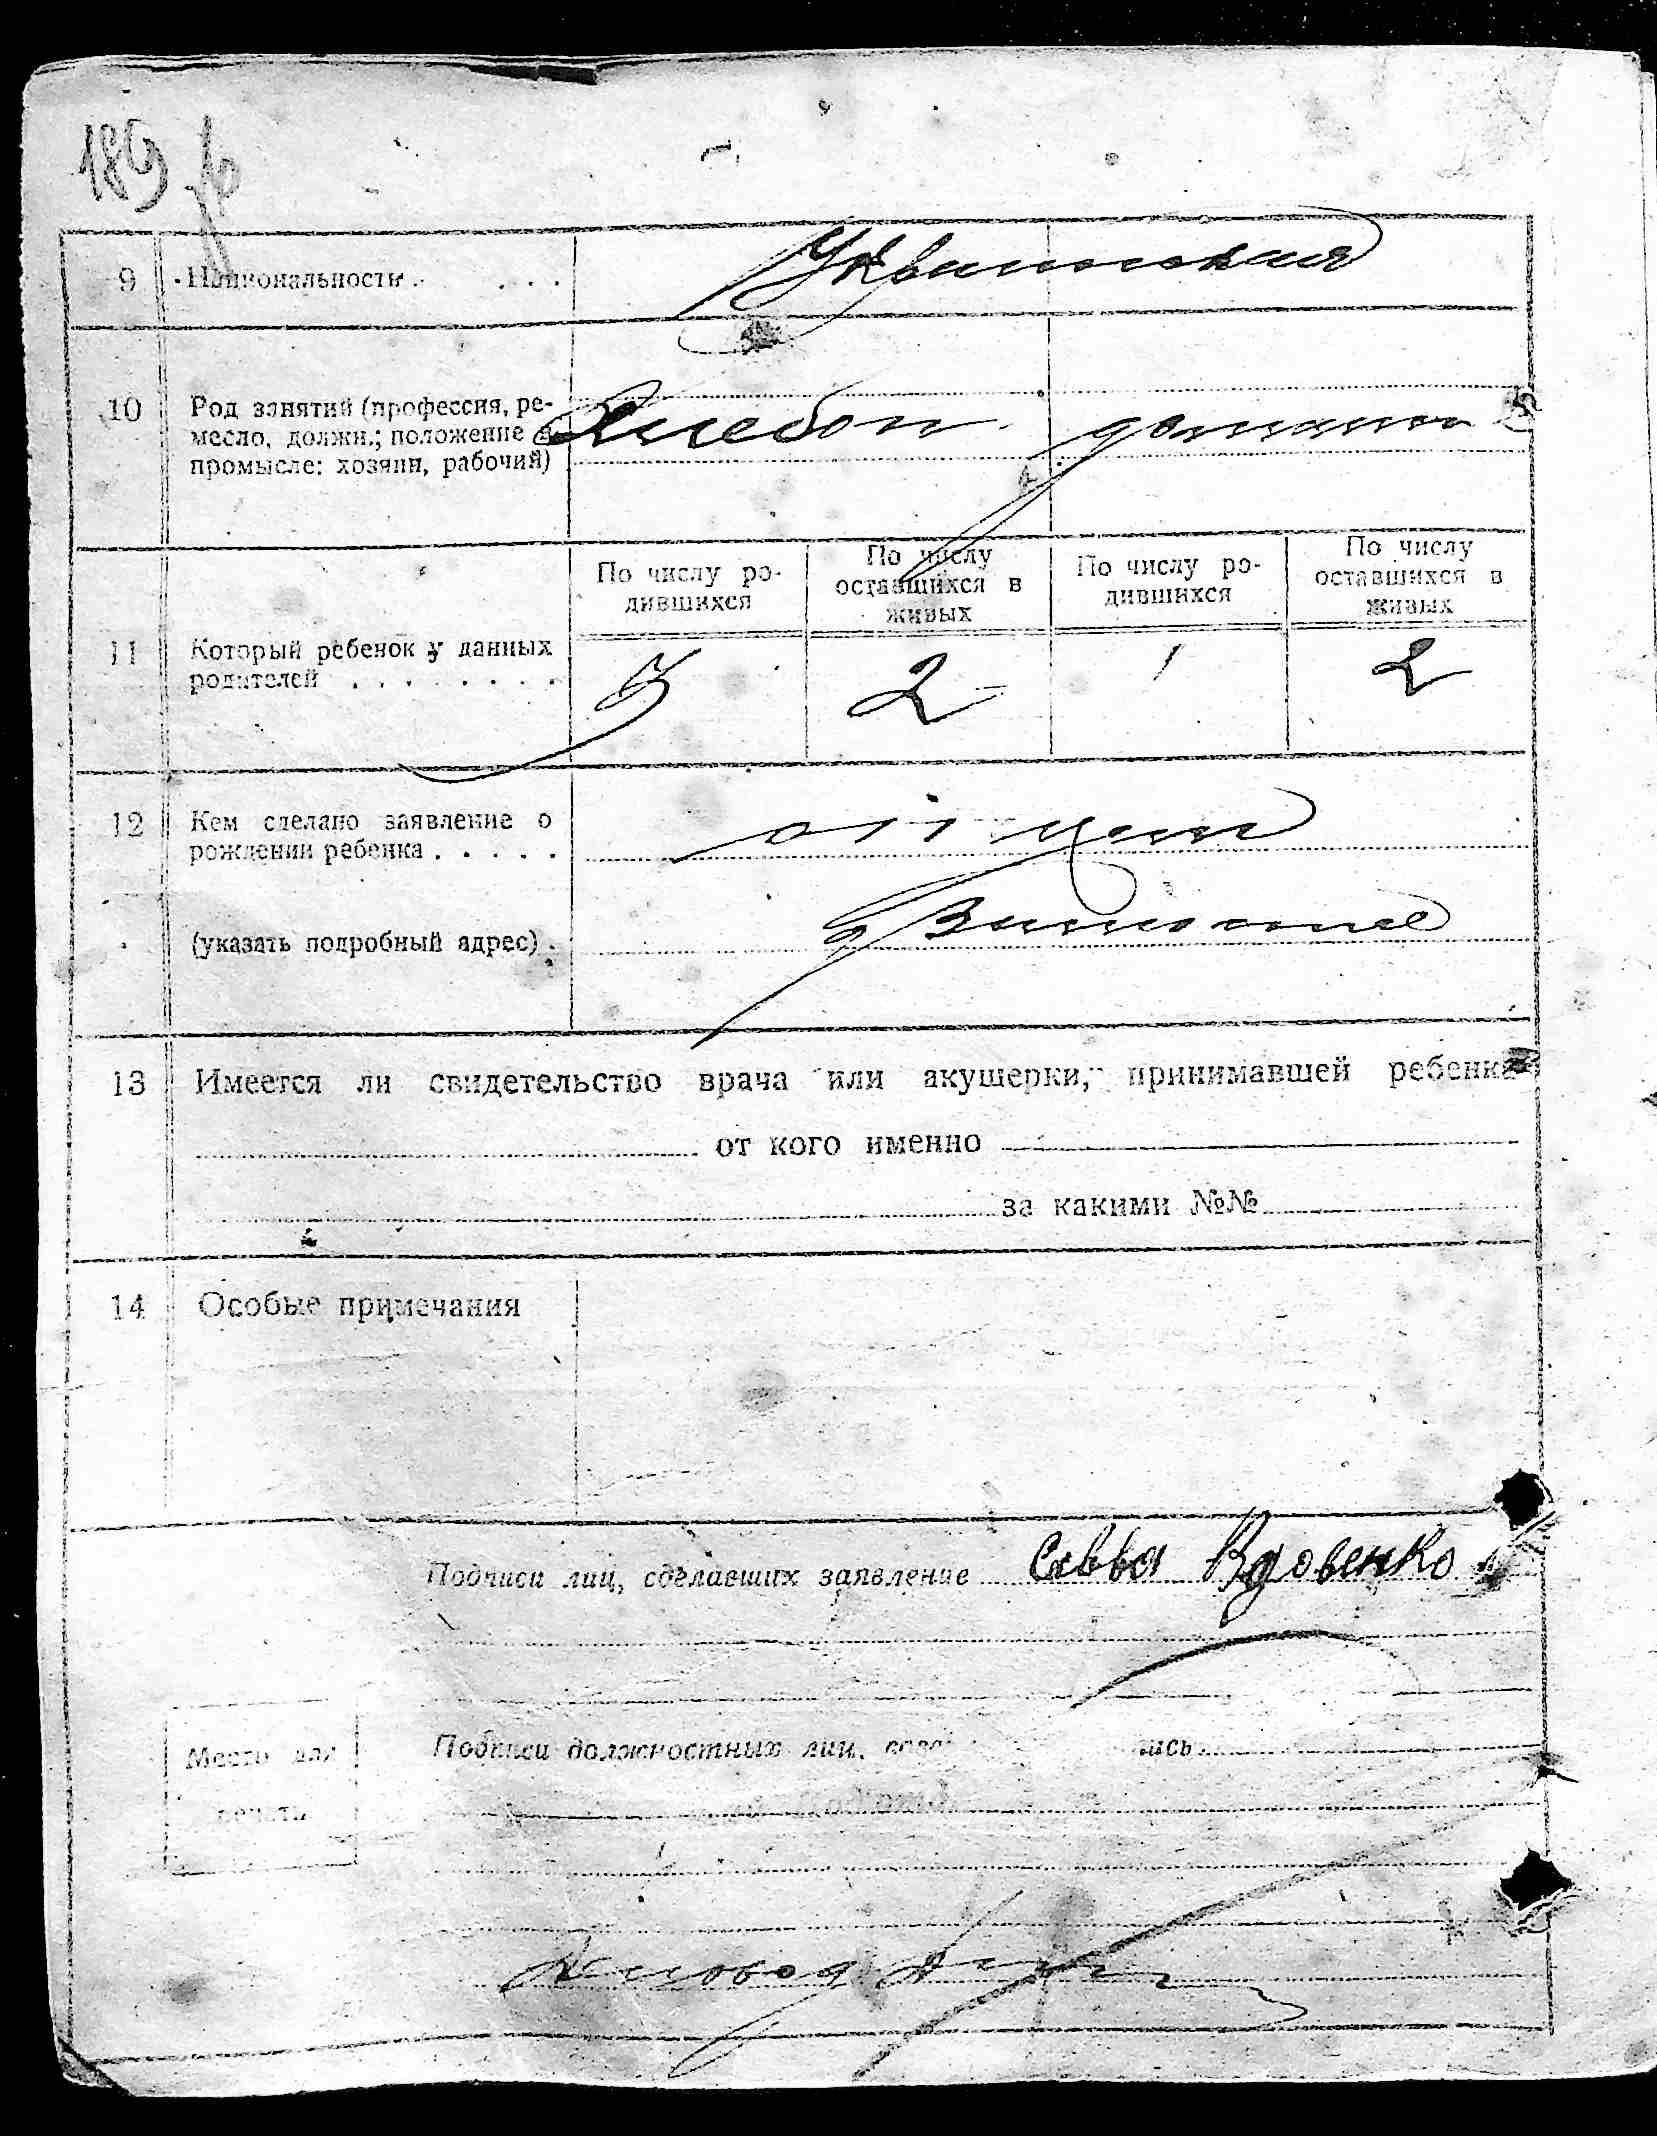 189
9 Национальность
Украинская
10 Род занятий (профессия, ре-
месло, должн.; положение в
промысле: хозяин, рабочий)
Хлебоп. домашн
По числу ро-
дившихся
По числу
оставшихся в
живых
По числу ро-
дившихся
По числу
оставшихся в
живых
11 Который ребенок у данных
родителей . . . . . . . .
2 1 2
12 Кем сделано заявление о
рождении ребенка . . . . .
отцем
(указать подробный адрес) .
13 Имеется ли свидетельство врача или акушерки, принимавшей ребенка
от кого именно
за какими №№
14 Особые примечания
Подписи лиц, сделавших заявление Савва Вдовенко
Место для
печати
Подписи должностных лиц,